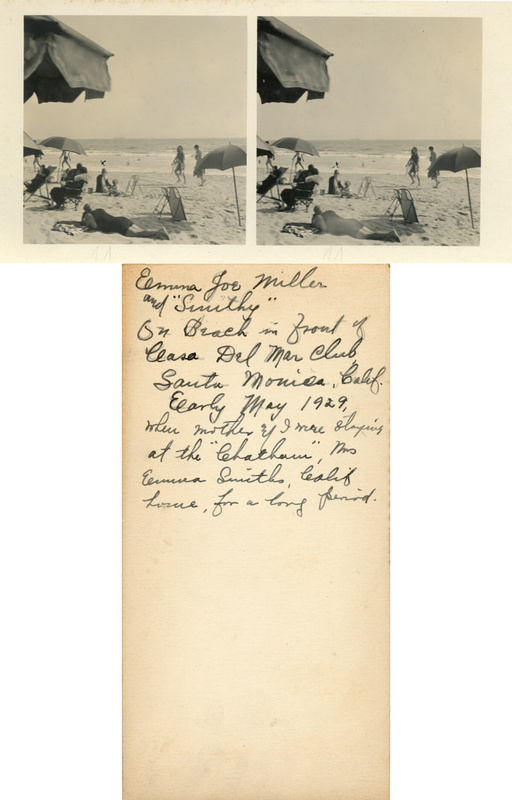 x
x
Emma Joe Miller
and "Smithy"
On Beach in Front of
Casa Del Mar Club,
Santa Monica, Calif.
Early May 1929,
when mother & I were staying
at the "Chatham", Mrs
Emma Smiths, Calif
home, for a long period.